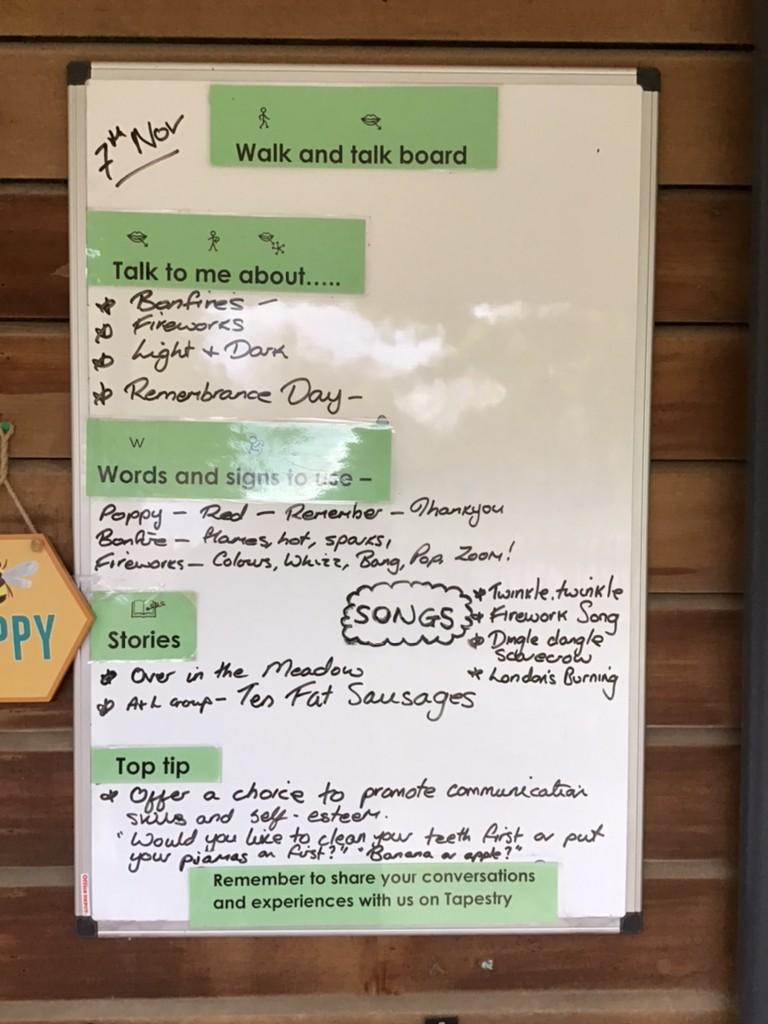 7th Nov
Walk and talk board
Talk to me about.....
Bonfires -
Fireworks
Light + Dark
Remembrance Day -
W
Words and signs to use -
Poppy - Red - Remember - Thankyou
Bonfire - flames, hot, sparks,
Fireworks - Colours, Whizz, Bang, Pop, Zoom!
SONGS
* Twinkle, twinkle
* Firework Song
* Dingle dangle
scarecrow
* London's Burning
Stories
Over in the Meadow
A+L Group - Ten Fat Sausages
Top tip
Offer a choice to promote communication
skills and self-esteem.
"Would you like to clean your teeth first or put
your pjamas on first?" "Banana or apple?"
Remember to share your conversations
and experiences with us on Tapestry
PPY
Office DEPOT